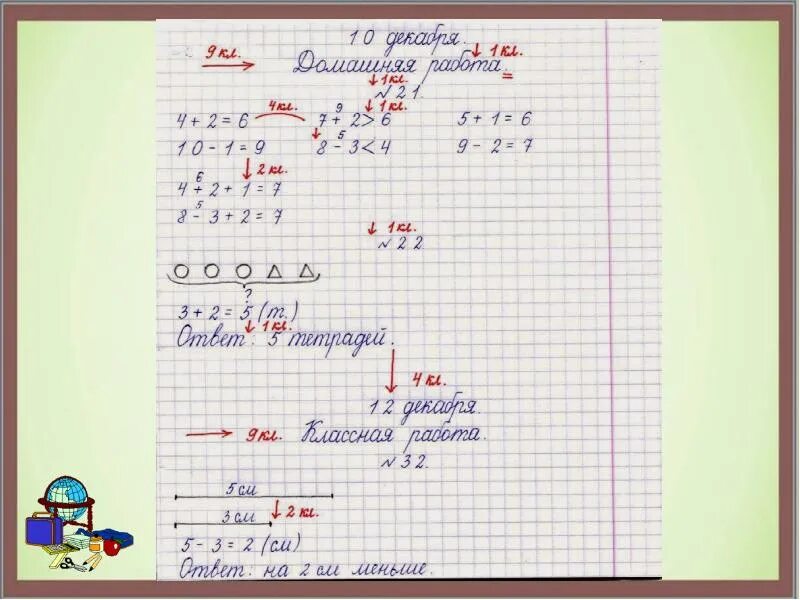 10 декабря.
9 кл.
↓ 1 кл.
Домашняя работа.
↓ 1 кл.
№ 21.
4 + 2 = 6 4 кл. 7 + 2 > 6 ↓ 1 кл. 5 + 1 = 6
9
10 - 1 = 9 8 - 3 < 4 9 - 2 = 7
5
↓ 2 кл.
6
4 + 2 + 1 = 7
5
8 - 3 + 2 = 7
↓ 1 кл.
№ 22.
?
3 + 2 = 5 (т.)
↓ 1 кл.
Ответ: 5 тетрадей.
↓ 4 кл.
12 декабря.
→ 9 кл. Классная работа.
№ 32.
5 см
3 см ↓ 2 кл.
5 - 3 = 2 (см)
Ответ: на 2 см меньше.